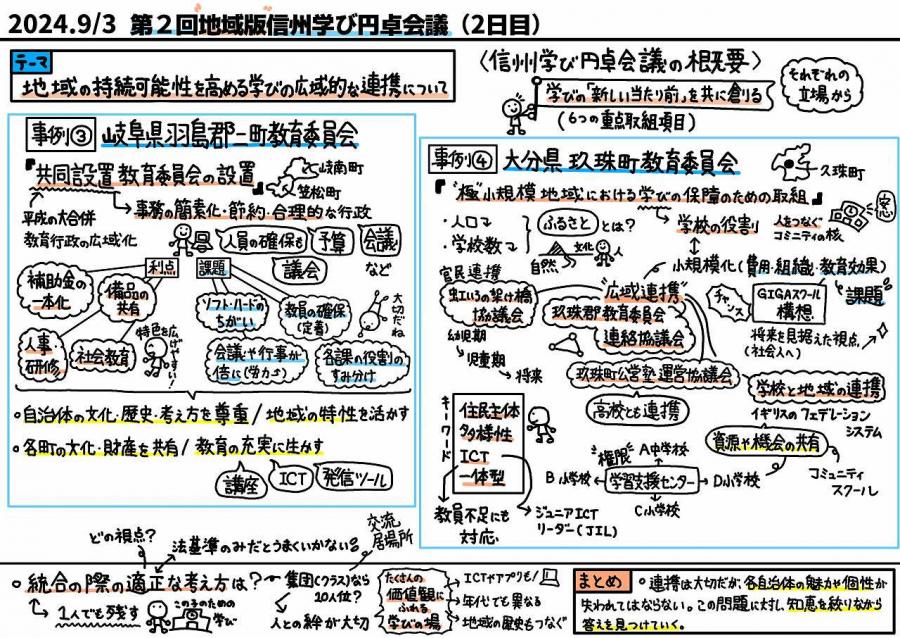 2024.9/3 第2回地域版信州学び円卓会議(2日目)
テーマ
地域の持続可能性を高める学びの広域的な連携について
〈信州学び円卓会議の概要〉
学びの「新しい当たり前」を共に創る
(6つの重点取組項目)
それぞれの
立場から
事例③ 岐阜県羽島郡二町教育委員会
『共同設置教育委員会の設置』
岐南町
笠松町
平成の大合併
教育行政の広域化
→事務の簡素化・節約・合理的な行政
人員の確保も
予算
会議
など
議会
利点
課題
補助金の
一本化
備品の
共有
人事・
研修
社会教育
特色を広
げやすい!
ソフト・ハードの
ちがい
教員の確保
(定着)
大切だね
会議や行事が
倍に(労力↗)
各課の役割の
すみ分け
・自治体の文化・歴史・考え方を尊重/地域の特性を活かす
・各町の文化・財産を共有/教育の充実に生かす
講座
ICT
発信ツール
事例④ 大分県 玖珠町教育委員会
久珠町
『"極"小規模地域における学びの保障のための取組』
・人口↘
・学校数↘
ふるさと とは?
自然
文化
→学校の役割
人をつなぐ
コミニティの核
窓
小規模化(費用・組織・教育効果)
課題
官民連携
虹いろの架け橋
協議会
幼児期
児童期
→将来
"広域連携"
玖珠郡教育委員会
連絡協議会
チャンス
GIGAスクール
構想
将来を見据えた視点
(社会人へ)
玖珠町公営塾運営協議会
高校とも連携
学校と地域の連携
イギリスのフェデレーション
システム
資源や機会の共有
コミュニティ
スクール
キーワード
住民主体
多様性
ICT
一体型
教員不足にも
対応
ジュニアICT
リーダー(JIL)
"権限"
A中学校
B小学校
学習支援センター
D小学校
C小学校
どの視点?
法基準のみだとうまくいかない
交流
居場所
・統合の際の適正な考え方は?
集団(クラス)なら
10人位?
1人でも残す
この子のための
学び
人との絆が大切
たくさんの
価値観に
ふれる
学びの場
→ICTやアプリも!
→年代でも異なる
地域の歴史もつなぐ
まとめ
・連携は大切だが、各自治体の魅力や個性が
失われてはならない。この問題に対し、知恵を絞りながら
答えを見つけていく。